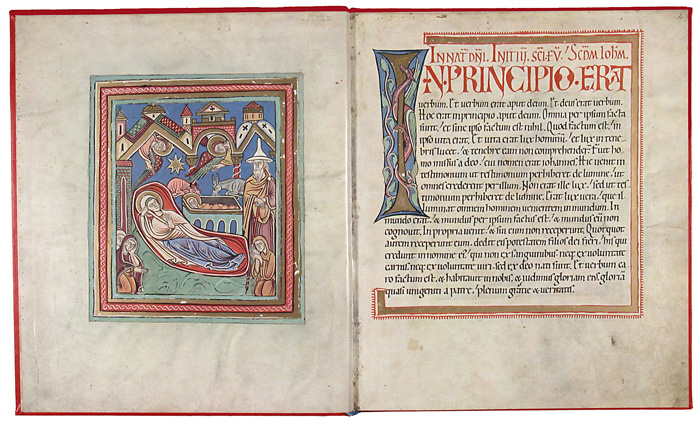 IN NAT DNI. INITIU SCI EV. SCDM IOHM.
IN PRINCIPIO ERAT
uerbum. Et uerbum erat aput deum. Et deus erat uerbum.
Hoc erat in principio aput deum. Omnia per ipsum facta
sunt. et sine ipso factum est nihil. Quod factum est. in
ipso uita erat. Et uita erat lux hominū. et lux in tene
bris lucet. & tenebre eam non comprehender̄. Fuit ho
mo missus a deo. cui nomen erat iohannes. Hic uenit in
testimonium ut testimonium perhiberet de lumine. ut
omnes crederent per illum. Non erat ille lux. sed ut tes
timonium perhiberet de lumine. Erat lux uera. que il
luminat omnem hominem uenientem in mundum. In
mundo erat. & mundus per ipsum factus est. & mundus eū non
cognouit. In propria uenit. & sui eum non receperunt. Quotquot
autem receperunt eum. dedit eis potestatem filios dei fieri. his qui
credunt in nomine ei'. qui non ex sanguinibus neq; ex uoluntate
carnis. neq; ex uoluntate uiri. sed ex deo nati sunt. Et uerbum ca
ro factum est. & habitauit in nobis. & uidimus gloriam eius. gloriā
quasi unigeniti a patre. plenum gratie & ueritatis.